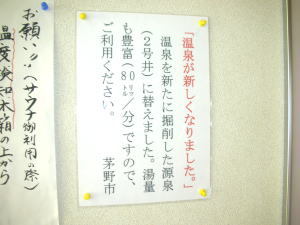 「温泉が新しくなりました。」
温泉を新たに掘削した源泉
（２号井）に替えました。湯量
も豊富（80㍑／分）ですので、
ご利用ください。
茅野市
お願い（サウナ御利用の際）
温度検知木箱の上から